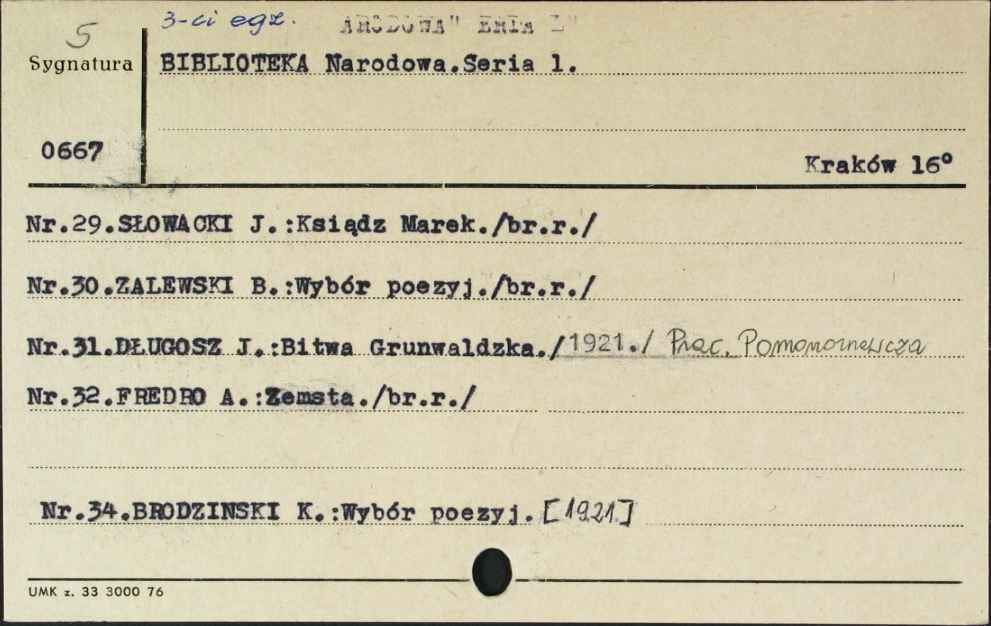 5
3-ci egz.
Sygnatura
BIBLIOTEKA Narodowa.Seria 1.
0667
Kraków 16°
Nr.29.SŁOWACKI J.:Ksiądz Marek./br.r./
Nr.30.ZALEWSKI B.:Wybór poezyj./br.r./
Nr.31.DŁUGOSZ J.:Bitwa Grunwaldzka./1921./ Prac.
Nr.32.FREDRO A.:Zemsta./br.r./
Nr.34.BRODZINSKI K.:Wybór poezyj.[1921]
UMK z. 33 3000 76